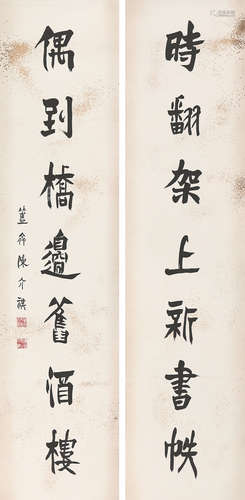 時翻架上新書帙
偶到橋邊舊酒樓
簠齋陳介祺